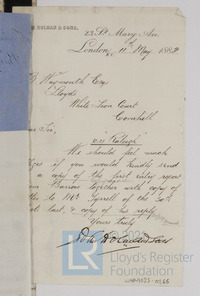 HOLMAN & SONS,
23 St. Mary Axe
London, 11th May 1882
B. Waymouth Esqr
Lloyds
White Lion Court
Cornhill
Sir,
"Raleigh"
We should feel much
if you would kindly send
a copy of the first entry report
together with copy of
to Mr. Tyrrell of the 30th
last, & copy of his reply
Yours truly
John Holman & Sons
© 2020
Lloyd's Register
Foundation